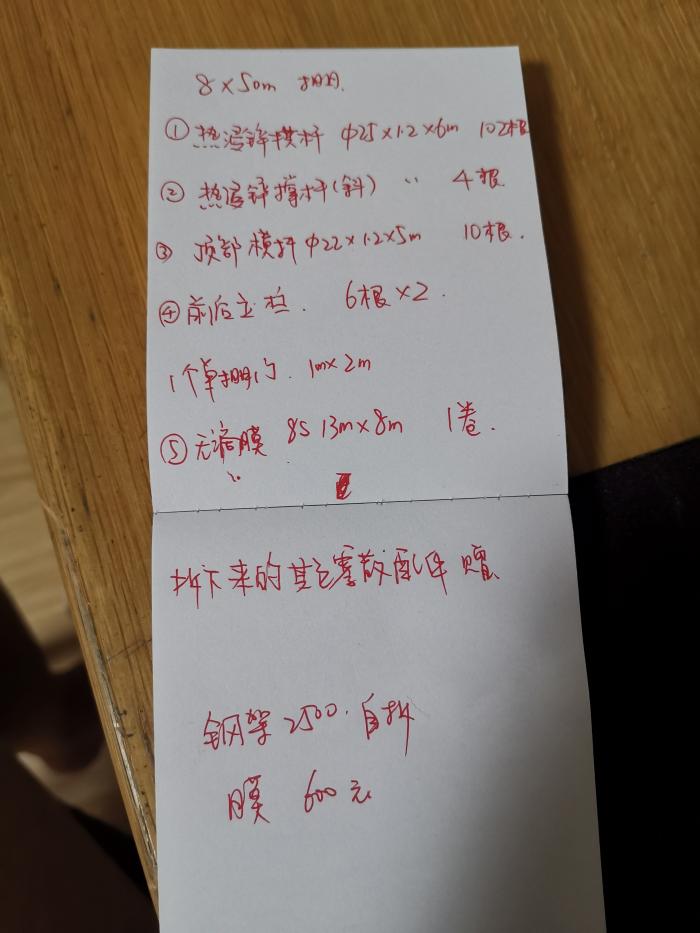 8×50m 棚.
① 热浸锌横杆 Φ25×1.2×6m 102根
② 热浸锌撑杆(斜) 〃 4根
③ 顶部横杆Φ22×1.2×5m 10根.
④ 前后立柱. 6根×2.
1个单棚门. 1m×2m
⑤ 无滴膜 8S 13m×8m 1卷.
拆下来的其它零散配件 赠
钢架 2500. 自拆
膜 600元